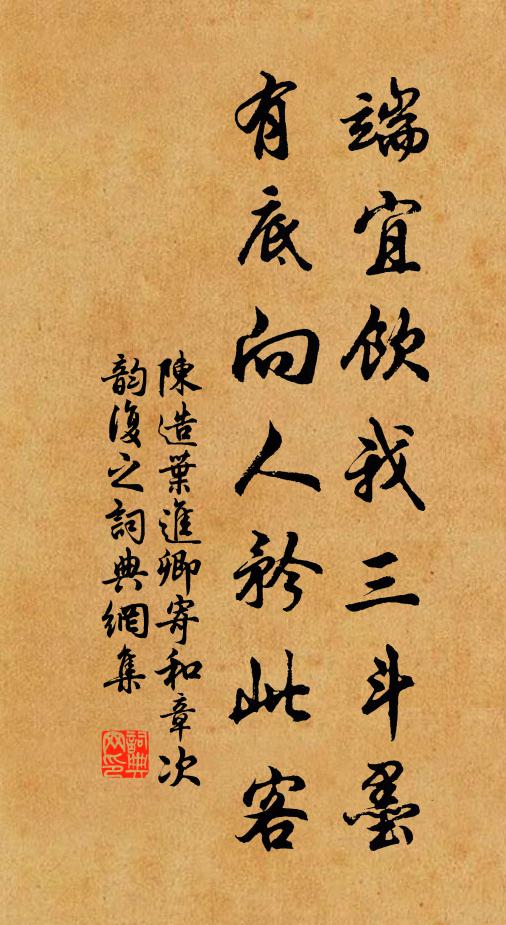 端宜飲我三斗墨
有底向人矜此客
陳造葉進卿寄和章次
韵復之詞典網集
詞典網印